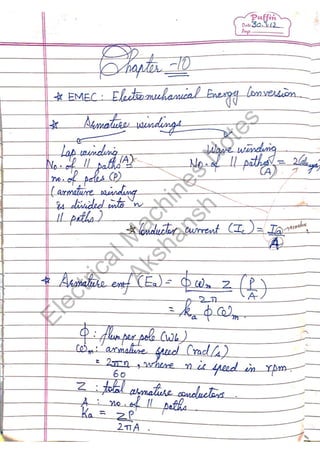 Puffin
Date 30.1.12
Page
Chapter -10
* EMEC : Electromechanical Energy Conversion
* Armature windings
Lap winding
Wave winding
No. of || paths (A) =
No. of || paths (A) = 2 (always)
no. of poles (P)
( armature winding
is divided into n
|| paths )
* Conductor current (Ic) = Ia/A
* Armature emf (Ea) = ϕ ωm Z/2π (P/A)
= ka ϕ ωm.
ϕ : flux per pole (Wb)
ωm : armature speed (rad/s)
= 2πn/60 , where n is speed in rpm
Z : total armature conductors
A : no. of || paths
Ka = ZP/2πA .
Electrical Machines Notes
Akshansh